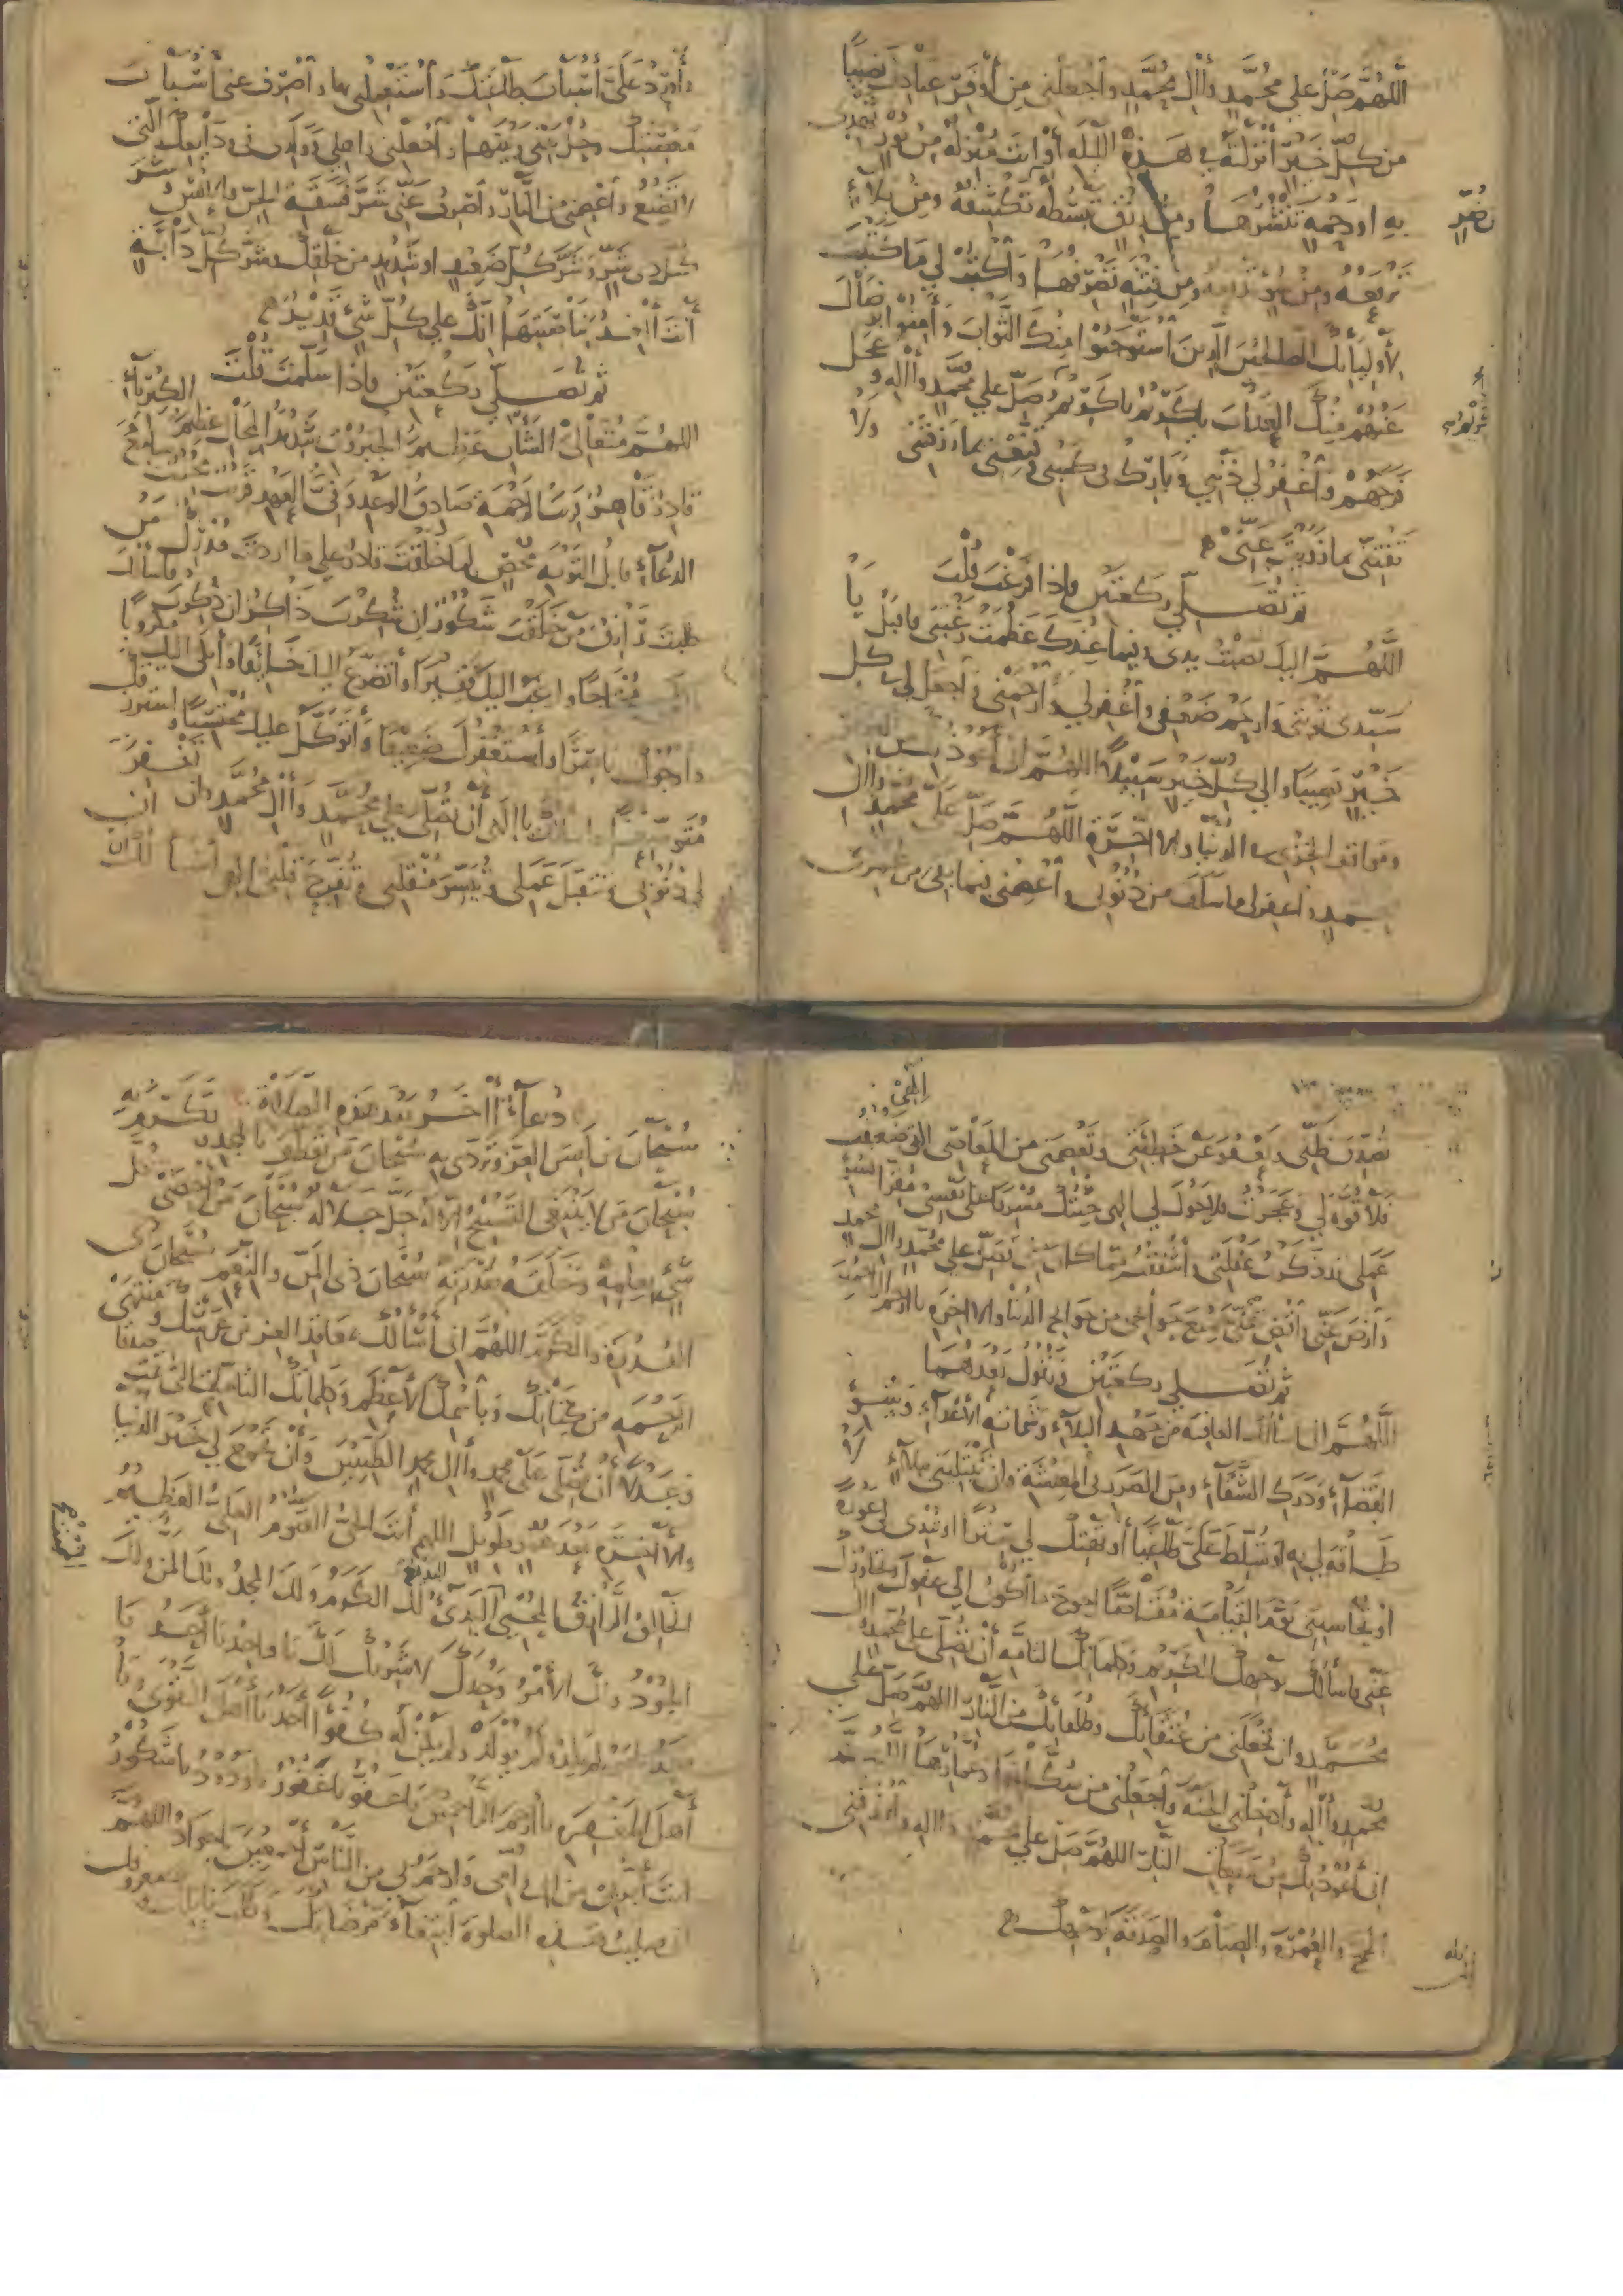 اللهُمَّ صَلِّ علي محُمَّدٍ وَاٰل محُمَّدٍ وَاجعَلني مِن أوْفَرِ عبادكَ نصَيبًا
من كلِّ خَيرٍ أنزلته في هَذِهِ اللَّيله أو انتَ مُنْزِلُهُ مِن نُورٍ تَهْدي
به اورَحمةٍ تَنْشُرُهَا ومِن رِزقٍ تَبْسُطُه تكشِفُهُ ومِنْ بَلاءٍ
تَرْفعُه ومِن سُوءٍ تدفعه ومِن فِتنَةٍ تَصْرِفُها وَاكْتُبْ لي مَا كتَبتَ
لأوليَائك الصالحينَ الّذِينَ اسْتَوجَبُوا مِنْكَ الثَّوابَ وَأمِنُوا برضَاكَ
عَنْهُمْ مِنكَ العَذابَ ياكَرِيْمُ ياكَرِيمُ صَلِّ علي محُمَّدٍ وَاٰلِهِ وعَجل
فرجَهُمْ وَاغْفِر لي ذَنبي وَبَارِك لي كَسْبي وَقَنِّعْني بمارَزقتَني وَلا
تَفْتِنّي بماذَوَيتَ عَنّيْ
ثم تصَلّي ركعَتَين فاذا فَرغْتَ قُلْتَ
اللَّهُمَّ اليك نصَبْتُ يدي وفيما عِندَكَ عَظُمَتْ رَغْبَتي فاقبَلْ يَا
سَيّدي تَوْبَتي وَارحَمْ ضَعْفي وَاغْفِر لي وَارْحَمْني وَاجعَل لي في كل
خَيْرٍ نَصِيبًا والي كُلِّ خَيْرٍ سَبِيْلاً اللهُمَّ انّي أعُوذُ بك من
ومَواقف الخزي في الدُّنيَا والآخرَة اللَّهُمَّ صَلِّ عَلي محُمّدٍ وال
محمدٍ واغفر لي ما سَلَفَ مِن ذنُوبي واعْصِمْني فيما بقيَ من عُمري
وَأوْرِدْ عَلَيَّ أسْبَابَ طَاعَتِكَ وَاسْتَعْمِلْني بها واصْرِف عَني أسْبَابَ
مَعْصِيَتِكَ وحُلْ بَيْني وَبَيْنَهَا واجْعَلْني وَاهلِي وَوَلَدي في وَدَائِعِكَ الَّتي
لا تَضِيْعُ وَاعْصِمْني من النَّارِ وَاصْرِفْ عَنّي شَرَّ فَسَقَةِ الجِنِّ والانْسِ وشَرَّ
كلِّ ذي شَرٍّ وشَرَّ كُلِّ ضَعِيفٍ اوشَدِيدٍ مِن خَلْقِكَ وشَرَّ كُلِّ دَابَّةٍ
أنتَ اٰخِذٌ بِنَاصِيَتِهَا انّكَ علي كُلِّ شَيْءٍ قَدِيْرٌ
ثم تصَلّي رَكعَتَيْنِ فاذا سَلّمتَ قُلْتَ
اللهُمَّ مُتَعَالي الشَّان عَظِيمَ الجَبَرُوْتِ شَديدَ المِحَال عَظِيمَ الكِبْرِيَاءِ
قادِرٌ قَاهِرٌ قرِيبُ الرَحْمَةِ صَادِقُ الوَعْدِ وَفيُّ العَهْدِ قَريبٌ مجيبُ
الدُّعَاءِ قابلُ التَوْبَةِ مُحصٍ لِمَا خَلَقْتَ قادرٌ علي ما اردت مدرك مَن
طلبتَ رَازقُ مَن خَلَقْتَ شَكُورٌ ان شُكِرْتَ ذَاكِرٌ ان ذُكِرتَ فاسألك
مُحْتَاجًا وارغبُ اليكَ فَقِيرًا وأتضَرّعُ اليكَ خَائِفًا وأبكي اليك مكروبًا
وأرجُوك ناصِرًا وأستَغْفِرُكَ ضَعِيْفًا وَأتوَكّل عليك محتَسِبًا واسترزقك
مُتَوسِّعًا واسألك ياالهي أنْ تُصَلِّي علي محُمّد وَاٰل محُمّد وان تَغْفِرَ
لي ذُنُوبي وَتتقبَّلَ عَمَلي وتُيَسِّرَ مُنقَلَبي وتُفَرِّجَ قَلبي الهي أسْأَلك ان
الهي
تُصَدِّقَ ظَنِّي وتَعْفُوَ عَنْ خَطِيئَتي وتَعْصِمَني مِن المَعَاصي الهي ضَعُفتُ
فلا قُوّةَ لي وعَجَزْتُ فلا حَوْلَ لي الهي جئتُكَ مُسْرِفًا عَلي نَفْسي مُقِرًا بسُوء
عَمَلي قد ذكرْتُ غَفْلَتي وأشْفَقْتُ ممّا كان مني فصَلِّ علي محُمّدٍ واٰل محمد
وَارْضَ عَنّي واقْضِ لي جَميعَ حَوَائجي من حَوائج الدُّنيَا والاخرَة ياارحَم الراحمينَ
ثم تصَلي ركعَتَيْنِ وتَقُوْلُ بَعدَهُمَا
اللَّهُمَّ اني اسألك العافيَةَ مِن جَهْدِ البَلاءِ وَشماتةِ الأعْدَآءِ وَسُوْءِ
القَضَآءِ وَدَرَك الشَّقَآءِ ومِن الضَرَر في المَعِيْشَةِ وان تَبْتَلِيَني ببَلَاءٍ لا
طَاقَةَ لي بهِ اوتُسَلِّطَ عَلَيَّ طَاغِيًا أوتَهْتِكَ لي سِتْرًا اوتُبْدِيَ لي عَوْرَةً
أوْ تُحَاسِبَني يَوْمَ القِيَامَةِ مُقَاصًّا احوجَ ماأكُوْنُ الي عَفْوِكَ وتجاوُزِكَ
عَنّي فاسألكَ بوَجهِكَ الكَرِيْمِ وكلماتِكَ التامّةِ أنْ تُصَلِّيَ علي محُمّدٍ واٰل
محُمَّدٍ وان تَجْعَلَني من عُتَقَائِكَ وطُلَقَائِكَ مِنَ النّارِ اللهُمَّ صَلِّ علي
محُمّدٍ واٰلِهِ وأدخِلْني الجنَّةَ واجعَلْني من سُكَّانِهَا وعُمّارِهَا اللهُمَّ
اني أعُوْذُ بكَ مِن سَفعَاتِ النّارِ اللهُمَّ صَلِّ علي محُمّدٍ واٰله وارْزُقْني
الحج والعُمْرَةَ والصيَامَ والصَدَقَةَ لوَجْهِكَ
دُعاءٌ اٰخَرُ بَعْدَ هذِه الصَّلاةِ
سُبْحَانَ مَن لَبِسَ العِزَّ وَتَرَدّي بهِ سُبْحَانَ مَن تعَطَّفَ بالمَجْدِ وتَكَرَّمَ بِهِ
سُبْحَانَ مَن لا يَنْبَغي التَسْبِيْحُ الّا لَهُ جَلَّ جَلالُهُ سُبْحَانَ مَن أحْصي كُلَّ
شَيْءٍ بعِلمِهِ وَخَلَقَهُ بقُدرَتِهِ سُبْحَانَ ذي المَنِّ والنِّعَمِ سُبْحَانَ ذي
القُدْرَةِ والكَرَمِ اللهُمَّ اني أسْألُكَ بمَعَاقِدِ العِزِّ مِن عَرْشِكَ ومُنْتَهي
الرَحْمَةِ مِن كِتَابِكَ وَباسْمِكَ الأعظَمِ وَكلمَاتِكَ التامّاتِ التي تَمَّتْ صِدْقًا
وعَدْلاً أنْ تُصَلِّيَ عَلي محمدٍ واٰلِ محمدٍ الطَّيِّبِيْنَ وأنْ تَجْمَعَ لي خَيْرَ الدنيا
والاٰخِرَةِ بَعْدَ عُمُرٍ طَوِيْلٍ اللهم أنتَ الحَيُّ القَيُّومُ العَليُّ العَظِيمُ
الخَالِقُ الرَّازِقُ المُحْيي البَدِئُ البديع لَكَ الكَرَمُ ولَكَ المَجْدُ ولَكَ المَنُّ ولَكَ
الجُوْدُ ولَكَ الأمْرُ وَحْدَكَ لا شَرِيْكَ لَكَ يَا واحِدُ يَا أحَدُ يَا
صَمَدُ يامَنْ لم يَلِدْ ولَمْ يُوْلَدْ ولم يَكُنْ لَه كُفُوًا أحَدٌ يَا أهْلَ التَّقْوي ويَا
أهلَ المَغْفِرَةِ يا أرحَمَ الرّاحِمِيْنَ يَا عَفُوُّ يَا غَفُوْرُ يا وَدُوْدُ يا شَكُوْرُ
انتَ أبَرُّ بي مِن أبي وَأُمّي وَارحَمُ بي من النّاسِ أجْمَعِيْنَ يَاجَوَادُ اللهُمَّ
اني صَلَّيتُ هذه الصلوةَ ابْتِغَاءَ مَرْضَاتِكَ وطَلَبَ نَائلكَ ومعروفك